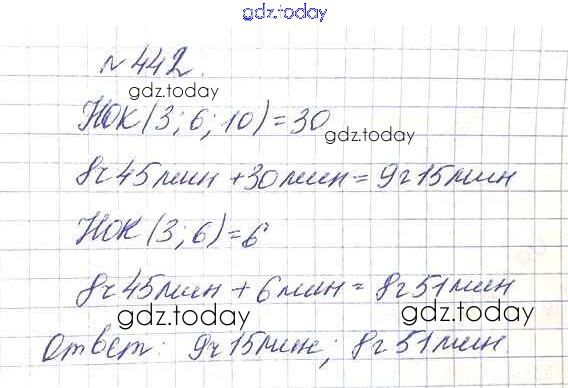 gdz.today
№ 442.
gdz.today
НОК(3; 6; 10) = 30
gdz.today
8ч 45мин + 30мин = 9ч 15мин
НОК(3; 6) = 6
8ч 45мин + 6мин = 8ч 51мин
gdz.today
gdz.today
Ответ: 9ч 15мин; 8ч 51мин.